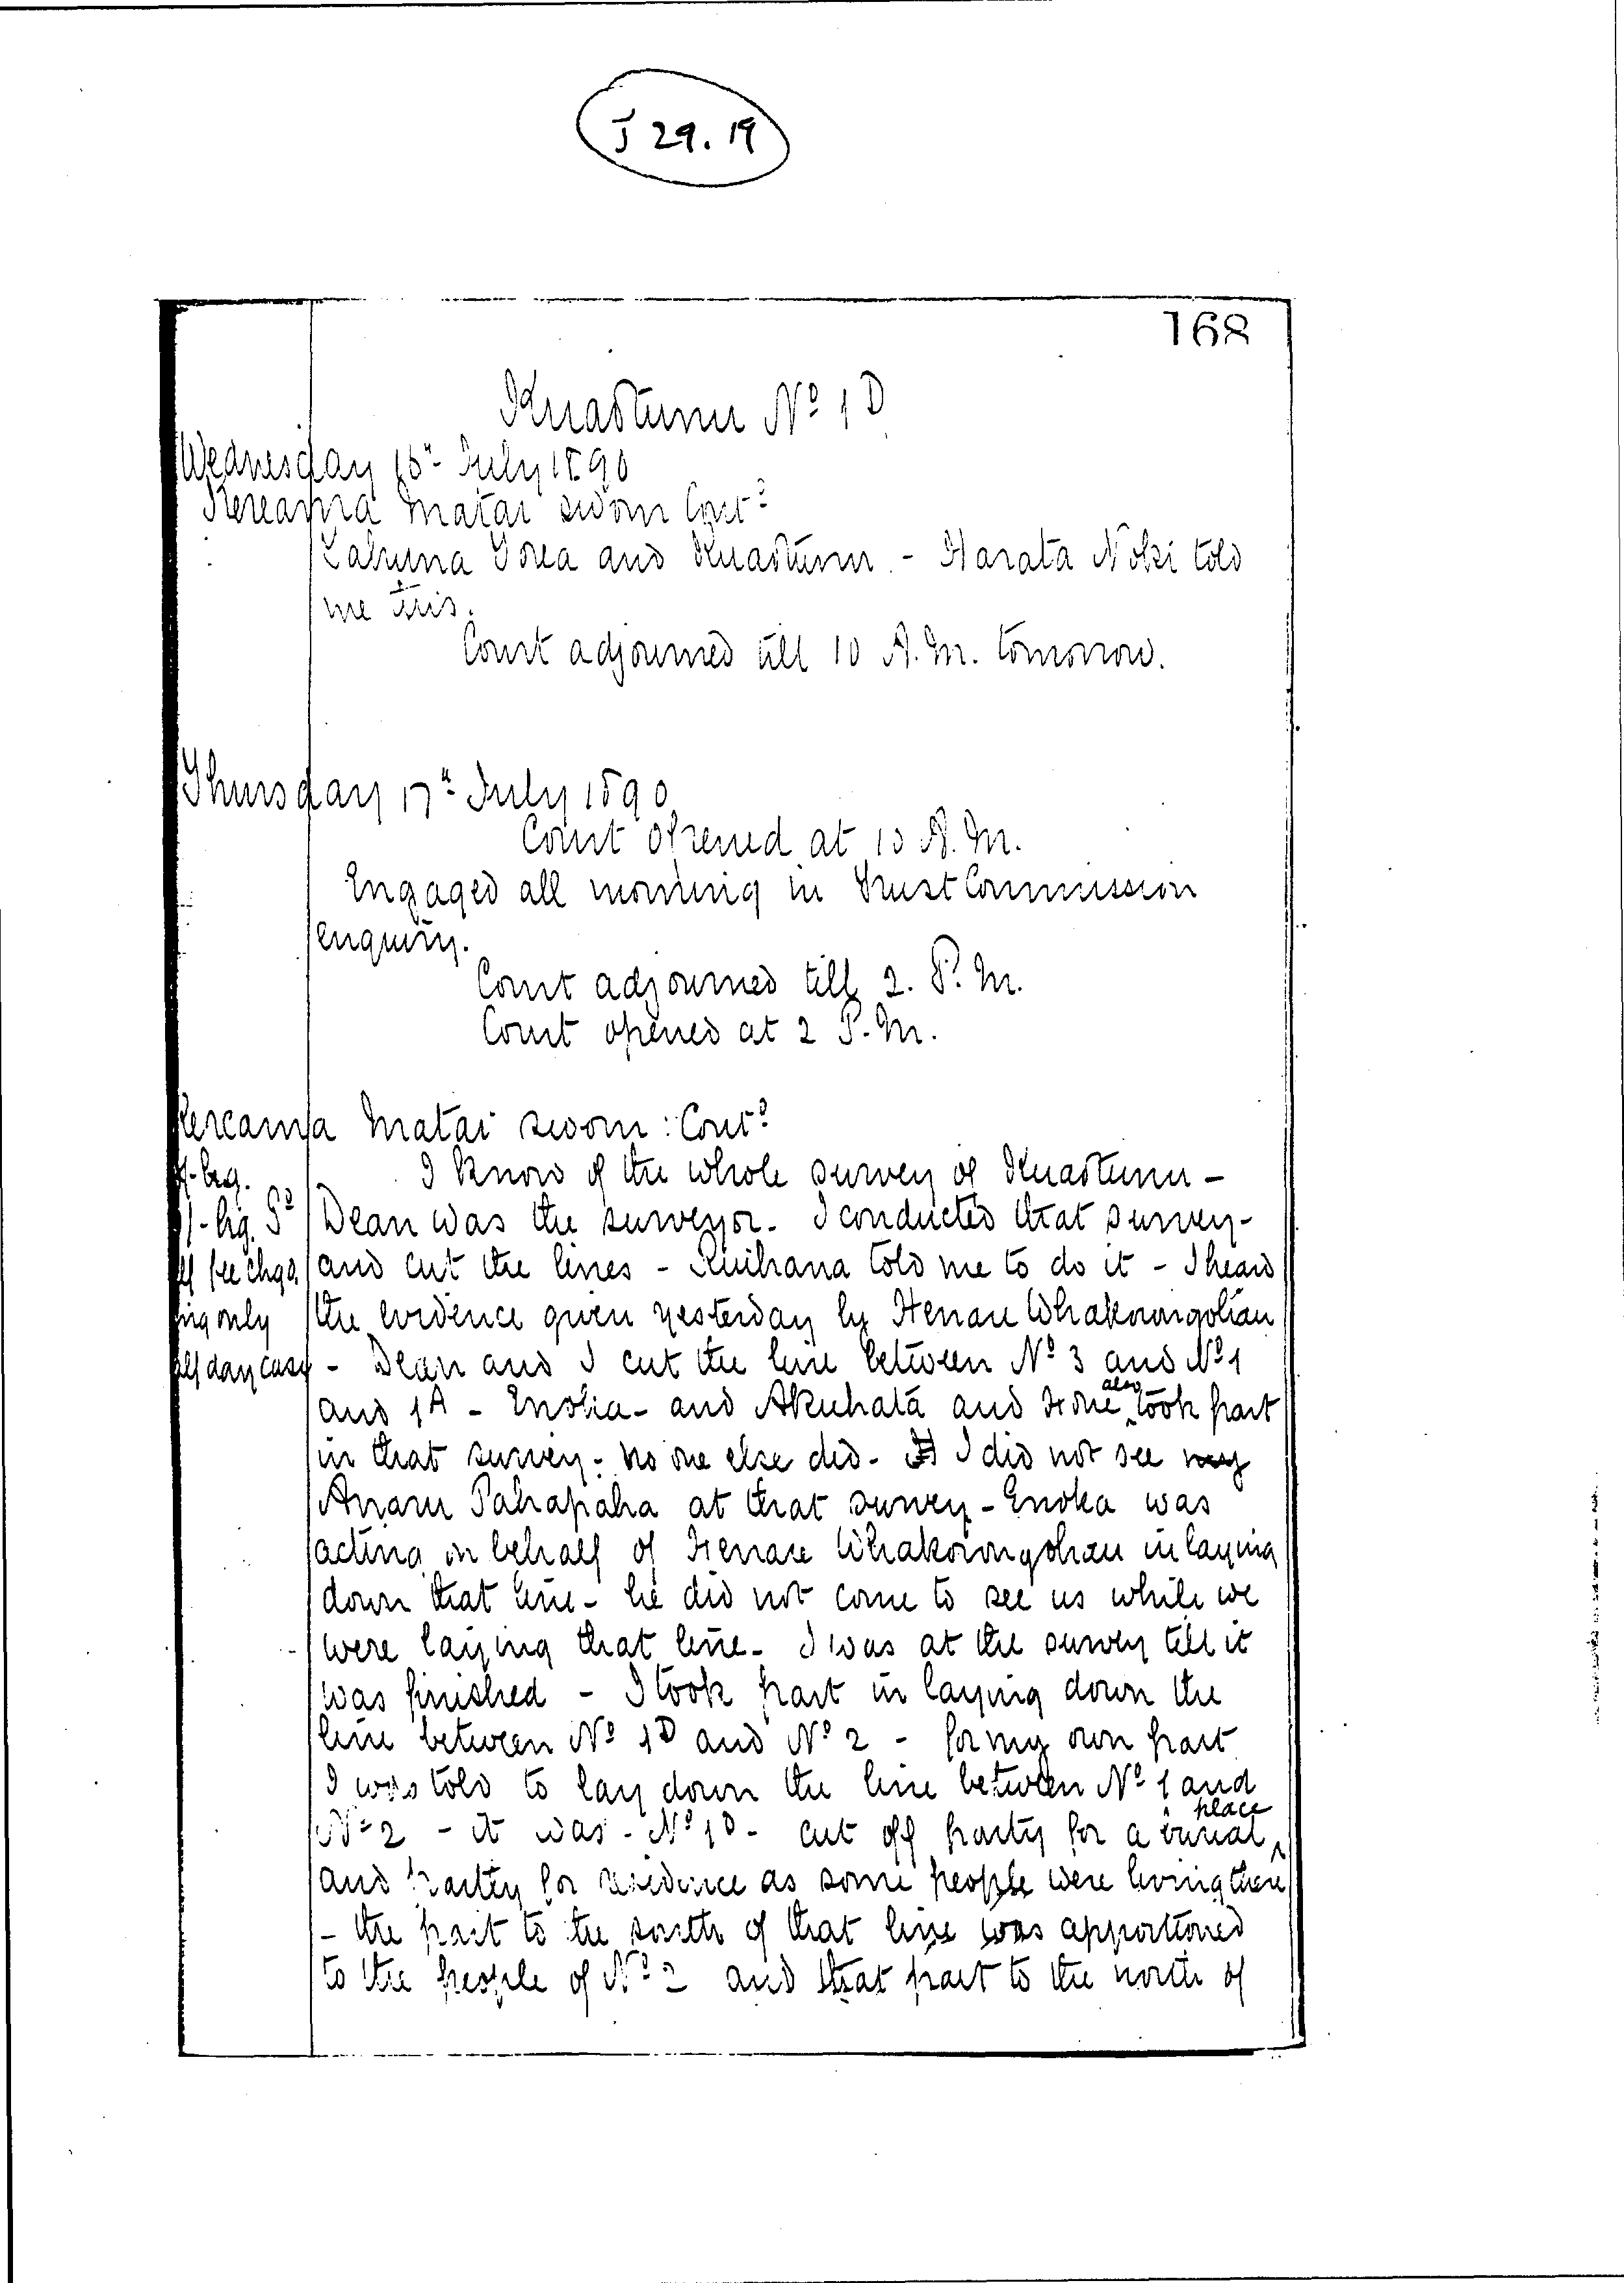 J 29.19
168
Kuaotunu No 1D
Wednesday 16th July 1890
Kereama Matai sworn Contd
Kahuna Torea and Kuaotunu. - Harata Noki told
me this.
Court adjourned till 10 A.M. tomorrow.
Thursday 17th July 1890
Court opened at 10 A.M.
Engaged all morning in Trust Commission
enquiry.
Court adjourned till 2. P.M.
Court opened at 2 P.M.
Kereama Matai sworn: Contd
I know of the whole survey of Kuaotunu -
Dean was the surveyor. I conducted that survey -
and cut the lines - told me to do it - I heard
the evidence given yesterday by Henare
- Dean and I cut the line between No 3 and No 1
and 1A - Enoka - and Akuhata and Hone also took part
in that survey - no one else did - I did not see
Anaru Pahapaha at that survey - Enoka was
acting on behalf of Henare in laying
down that line - he did not come to see us while we
were laying that line - I was at the survey till it
was finished - I took part in laying down the
line between No 1D and No 2 - for my own part
I was told to lay down the line between No 1 and
No 2 - it was - No 1D - cut off partly for a burial place
and partly for residence as some people were living there
- the part to the south of that line was apportioned
to the people of No 2 and that part to the north of
only
day case